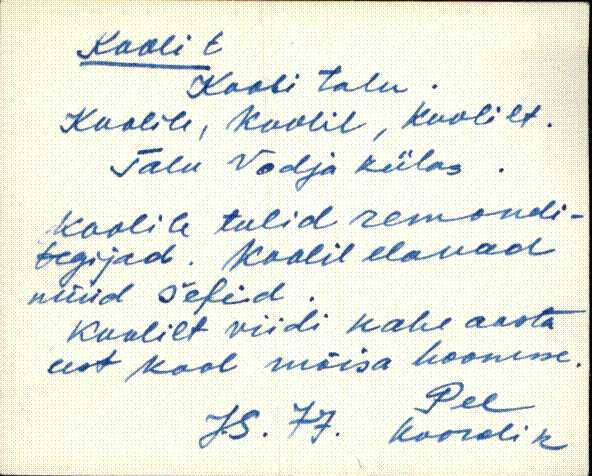 Kooli t
Kooli talu.
Koolile, koolil, koolilt.
Talu Vodja külas.
Koolile tulid remondi-
tegijad. Koolil elavad
nüüd šefid.
Koolilt viidi kahe aasta
eest kool mõisa hoonesse.
J.S. 77. Pee
Koordi k